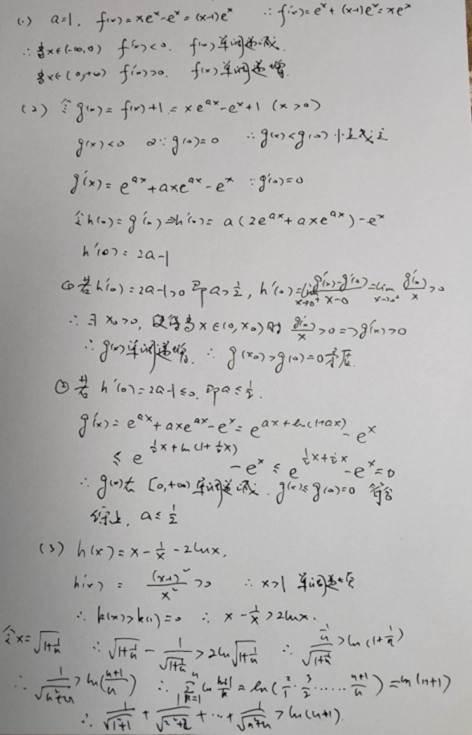 (1) a=1, f(x)=xe^x-e^x=(x-1)e^x ∴f'(x)=e^x+(x-1)e^x=xe^x
∴当x∈(-∞,0) f'(x)<0. f(x)单调递减.
当x∈(0,+∞) f'(x)>0. f(x)单调递增.
(2) 令g(x)=f(x)+1=xe^{ax}-e^x+1 (x>0)
g(x)<0 又∵g(0)=0 ∴g(x)<g(0)恒成立
g'(x)=e^{ax}+axe^{ax}-e^x ∵g'(0)=0
令h(x)=g'(x)⇒h'(x)=a(2e^{ax}+axe^{ax})-e^x
h'(0)=2a-1
① 若h'(0)=2a-1>0 即a>1/2, h'(0)=lim_{x→0+} (g'(x)-g'(0))/(x-0)=lim_{x→0+} g'(x)/x>0
∴∃x₀>0, 使得当x∈(0,x₀)时 g'(x)/x>0⇒g'(x)>0
∴g(x)单调递增. ∴g(x₀)>g(0)=0矛盾.
② 若h'(0)=2a-1≤0, 即a≤1/2.
g'(x)=e^{ax}+axe^{ax}-e^x=e^{ax+ln(1+ax)}-e^x
≤e^{1/2x+ln(1+1/2x)}-e^x≤e^{1/2x+1/2x}-e^x=0
∴g(x)在[0,+∞)单调递减. g(x)≤g(0)=0 符合
综上, a≤1/2
(3) h(x)=x-1/x-2lnx.
h'(x)=(x-1)²/x²>0 ∴x>1单调递增
∴h(x)>h(1)=0 ∴x-1/x>2lnx.
令x=√(1+1/n) ∴√(1+1/n)-1/√(1+1/n)>2ln√(1+1/n) ∴(1/n)/√(1+1/n)>ln(1+1/n)
∴1/√(n²+n)>ln((n+1)/n) ∴∑_{k=1}^{n}ln((k+1)/k)=ln(2/1·3/2·……·(n+1)/n)=ln(n+1)
∴1/√(1²+1)+1/√(2²+2)+…+1/√(n²+n)>ln(n+1).